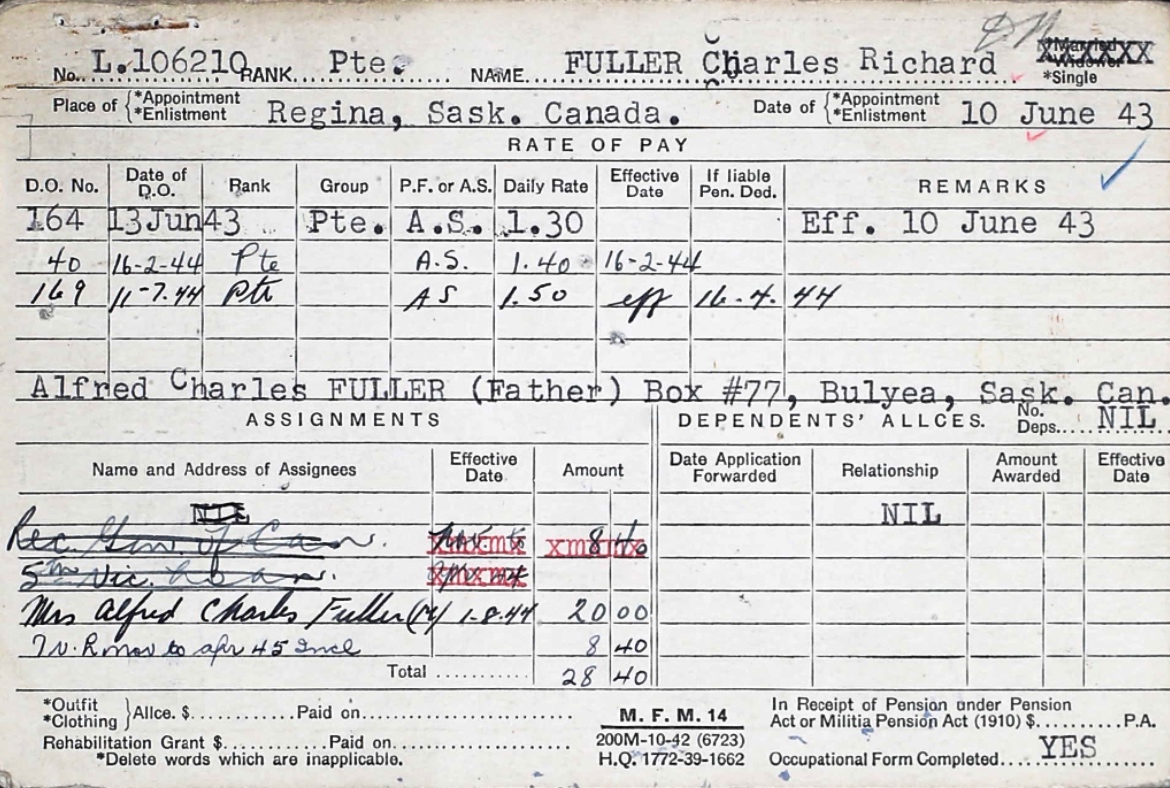 No. L.106210 RANK Pte. NAME FULLER Charles Richard *Married *Widower *Single
Place of { *Appointment *Enlistment Regina, Sask. Canada. Date of { *Appointment *Enlistment 10 June 43
RATE OF PAY
D.O. No. Date of D.O. Rank Group P.F. or A.S. Daily Rate Effective Date If liable Pen. Ded. REMARKS
164 13 Jun43 Pte. A.S. 1.30 Eff. 10 June 43
40 16-2-44 Pte A.S. 1.40 16-2-44
169 11-7.44 Pte AS 1.50 eff 16.4.44
Alfred Charles FULLER (Father) Box #77, Bulyea, Sask. Can.
ASSIGNMENTS DEPENDENTS' ALLCES. No. Deps..... NIL
Name and Address of Assignees Effective Date Amount Date Application Forwarded Relationship Amount Awarded Effective Date
NIL NIL
Rec. Gen. of Can. 8 40
5th Vic. Loan.
Mrs Alfred Charles Fuller (M) 1-8.44 20 00
7 V. R nov to apr 45 Incl 8 40
Total .......... 28 40
*Outfit *Clothing } Allce. $............Paid on........................
Rehabilitation Grant $...........Paid on....................
*Delete words which are inapplicable.
M. F. M. 14
200M-10-42 (6723)
H.Q. 1772-39-1662
In Receipt of Pension under Pension
Act or Militia Pension Act (1910) $..........P.A.
Occupational Form Completed.... YES